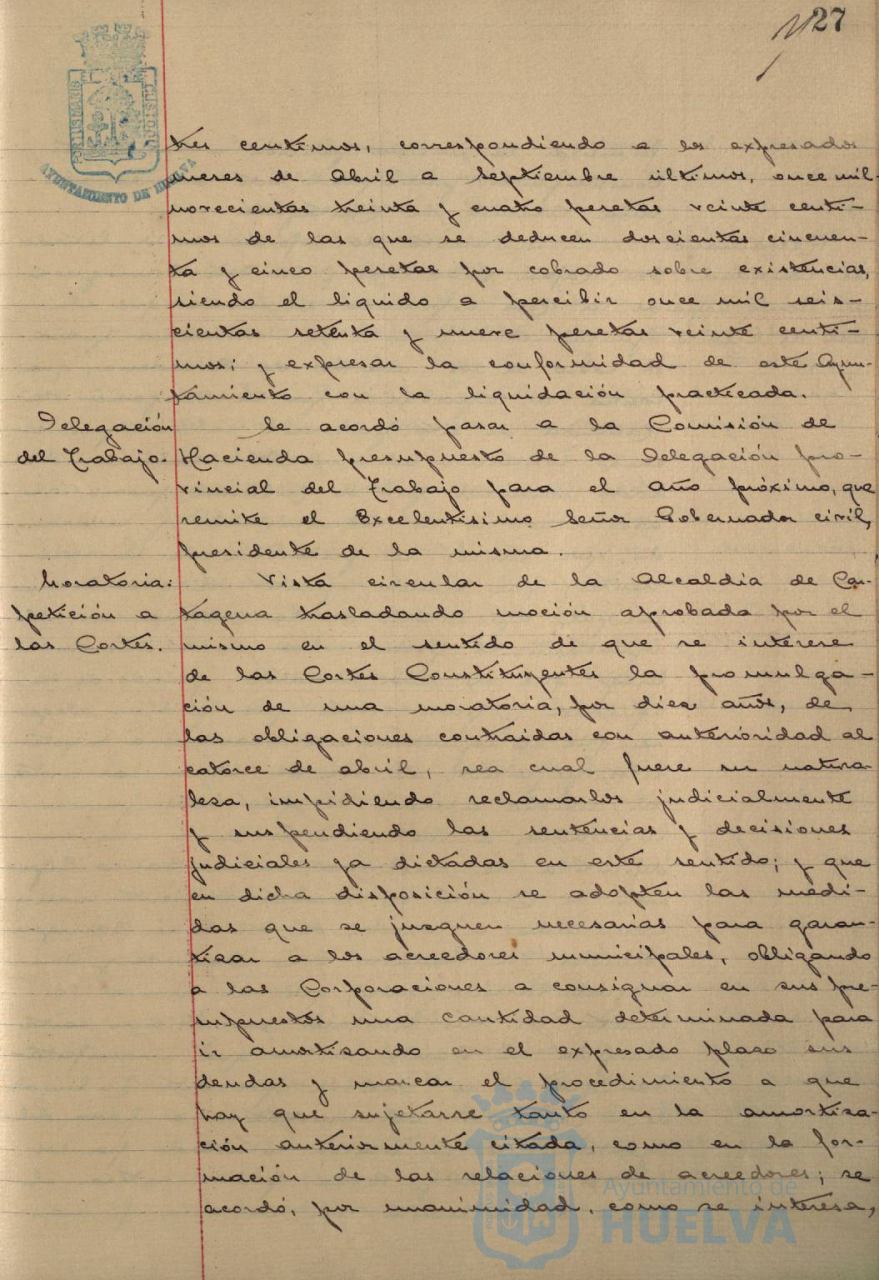 27
PORTUS MARIS ET TERRAE CUSTODIA
AYUNTAMIENTO DE HUELVA
tres centimos, correspondiendo a los expresados
meses de Abril a Septiembre últimos, once mil
novecientas treinta y cuatro pesetas veinte centi-
mos de las que se deducen doscientas cincuen-
ta y cinco pesetas por cobrado sobre existencias,
siendo el liquido a percibir once mil seis-
cientas setenta y nueve pesetas veinte centi-
mos; y expresar la conformidad de este Ayun-
tamiento con la liquidación practicada.
Delegación
del Trabajo.
Se acordó pasar a la Comisión de
Hacienda presupuesto de la Delegación pro-
vincial del Trabajo para el año próximo, que
remite el Excelentisimo Señor Gobernador civil,
presidente de la misma.
Moratoria:
petición a
las Cortes.
Vista circular de la Alcaldia de Car-
tagena trasladando moción aprobada por el
mismo en el sentido de que se interese
de las Cortes Constituyentes la promulga-
ción de una moratoria, por diez años, de
las obligaciones contraidas con anterioridad al
catorce de abril, sea cual fuere su natura-
leza, impidiendo reclamarlos judicialmente
y suspendiendo las sentencias y decisiones
judiciales ya dictadas en este sentido; y que
en dicha disposición se adopten las medi-
das que se juzguen necesarias para garan-
tizar a los acreedores municipales, obligando
a las Corporaciones a consignar en sus pre-
supuestos una cantidad determinada para
ir amortizando en el expresado plazo sus
deudas y marcar el procedimiento a que
hay que sujetarse tanto en la amortiza-
ción anteriormente citada, como en la for-
mación de las relaciones de acreedores; se
acordó, por unanimidad, como se interesa,
Ayuntamiento de
HUELVA